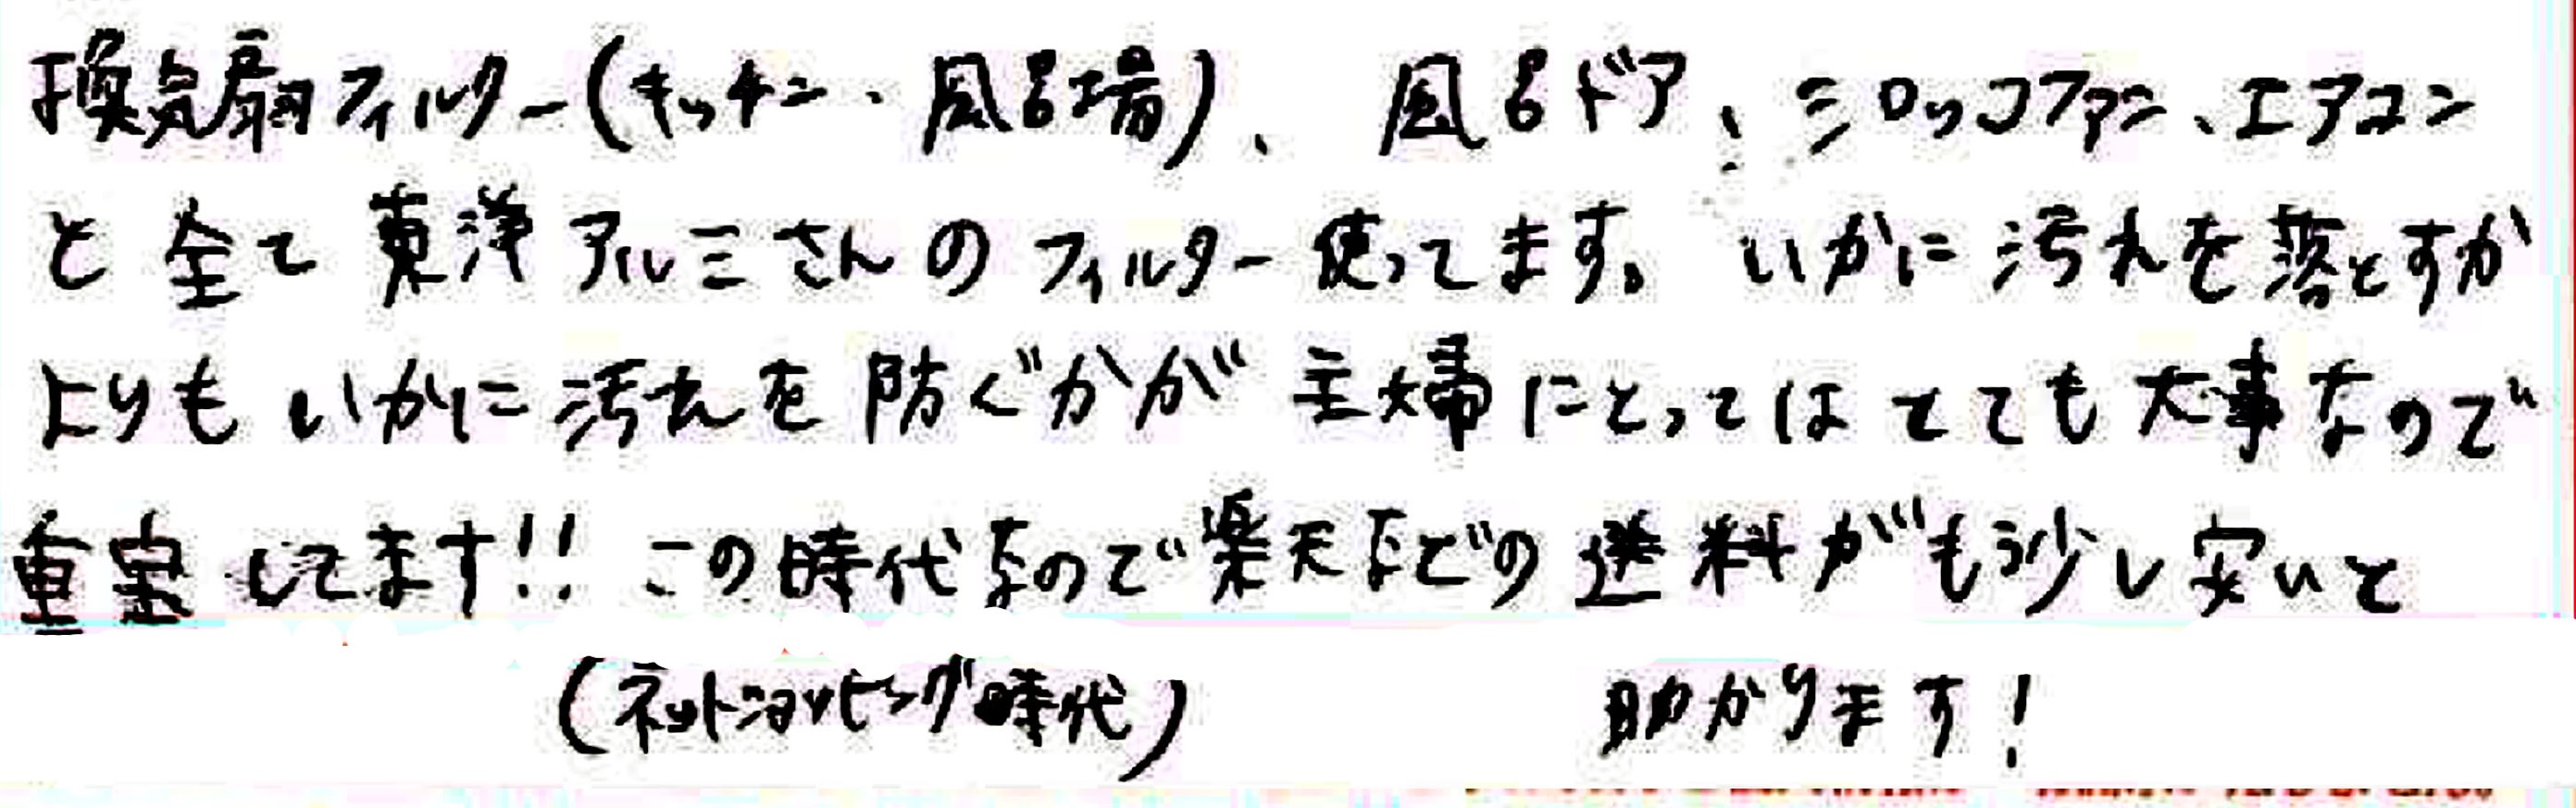 換気扇フィルター(キッチン・風呂場)、風呂ドア、シロッコファン、エアコン
と全て東洋アルミさんのフィルター使ってます。いかに汚れを落とすか
よりもいかに汚れを防ぐかが主婦にとってはとても大事なので
重宝してます!!この時代なので楽天などの送料がもう少し安いと
(ネットショッピング時代) 助かります!